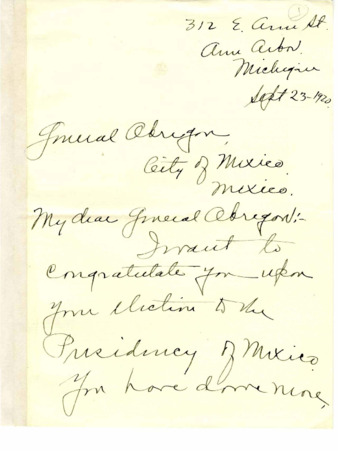 1
312 E. Ann St.
Ann Arbor.
Michigan
Sept 23-1920.
General Obregon,
City of Mexico
Mexico.
My dear General Obregon:-
I want to
congratulate you upon
your election to the
Presidency of Mexico.
You have done more,